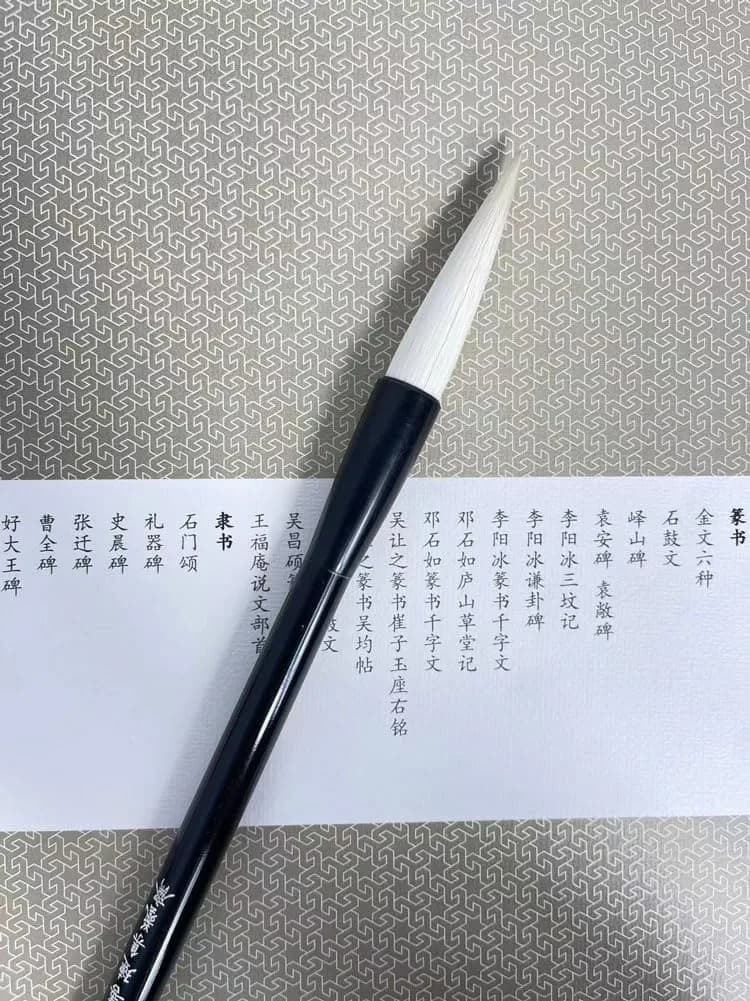 篆书
金文六种
石鼓文
峄山碑
袁安碑 袁敞碑
李阳冰三坟记
李阳冰谦卦碑
李阳冰篆书千字文
邓石如庐山草堂记
邓石如篆书千字文
吴让之篆书崔子玉座右铭
之篆书吴均帖
鼓文
吴昌硕
王福庵说文部首
隶书
石门颂
礼器碑
史晨碑
张迁碑
曹全碑
好大王碑